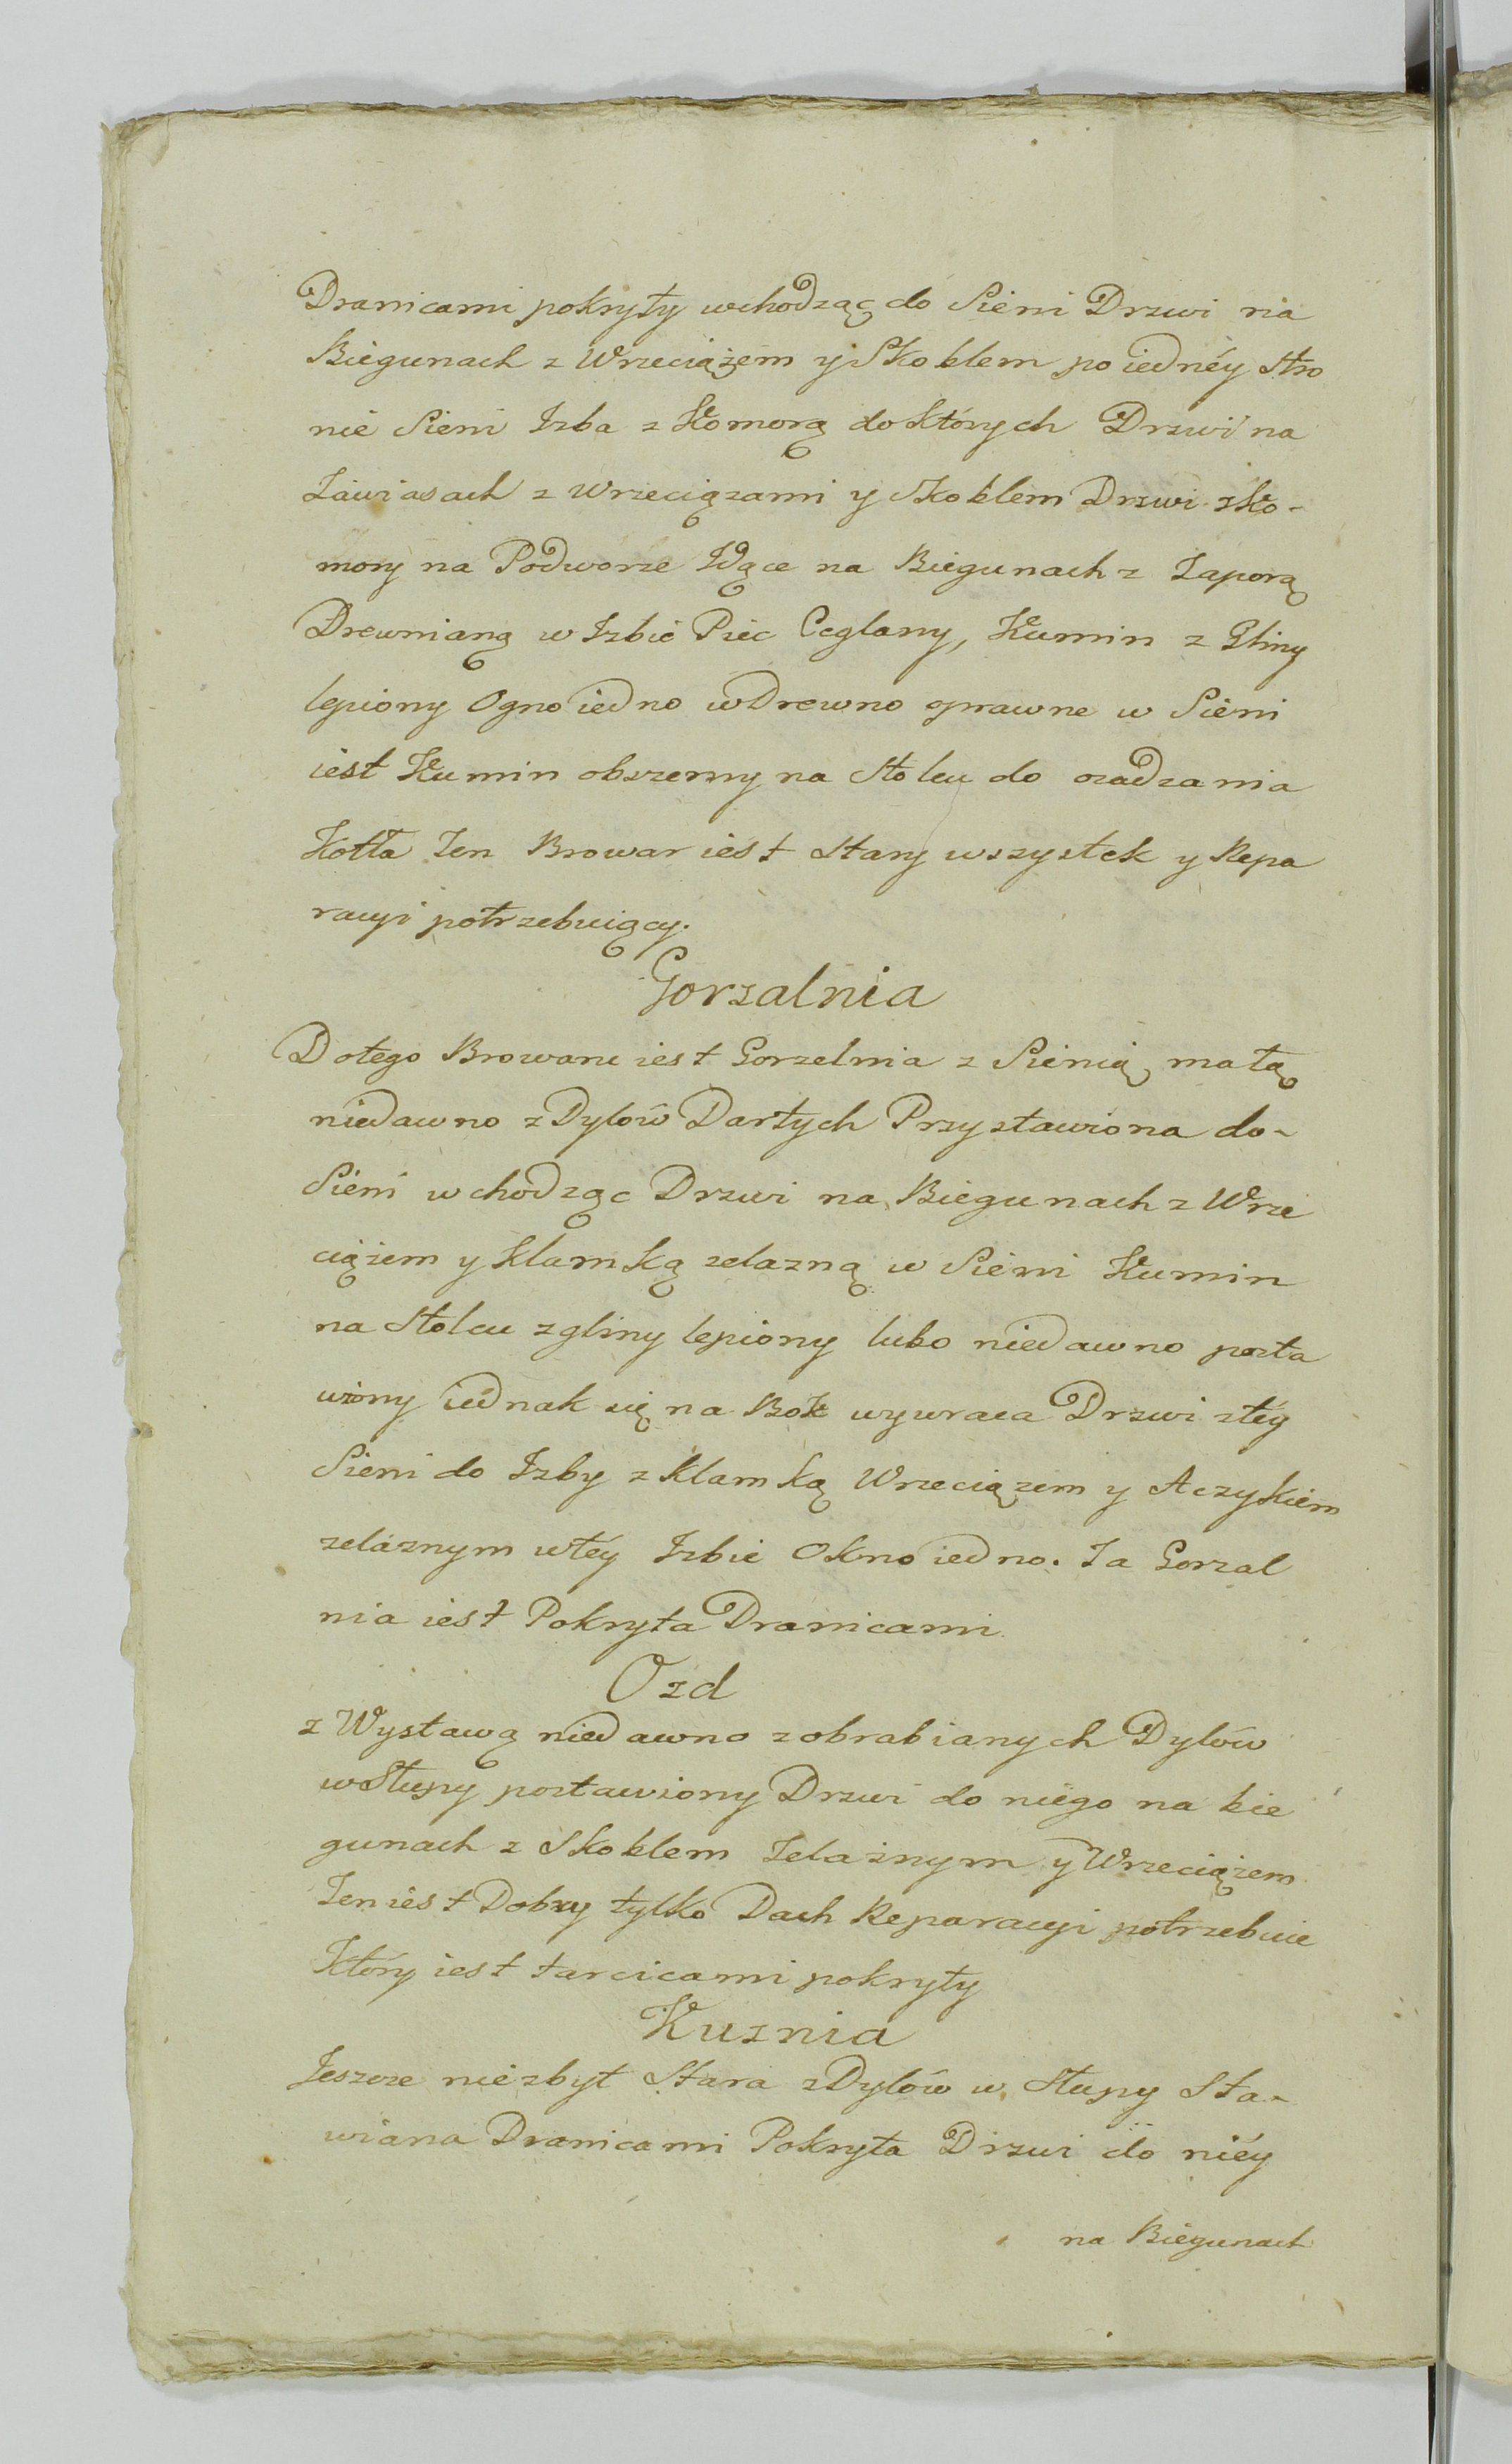 Dranicami pokryty wchodząc do Sieni Drzwi na
Biegunach z Wrzeciążem y Skoblem po iednéy stro
nie Sieni Izba z Komorą do których Drzwi na
Zawiasach z wrzeciązami y Skoblem Drzwi z Ko-
mory na Podworze Idące na Biegunach z Zaporą
Drewnianą w Izbie Piec Ceglany, Kumin z Gliny
lepiony Ogno iedno w Drewno oprawne w Sieni
iest Kumin obszerny na Stolcu do osadzania
Kotła Ten Browar iest Stary wszystek y Repa
racyi potrzebuiący.
Gorzalnia
Do tego Browaru iest Gorzelnia z Sienią małą
niedawno z Dylów Dartych Przystawiona do-
Sieni wchodząc Drzwi na Biegunach z Wrze
ciążem y klamką zelazną w Sieni Kumin
na Stolcu z gliny lepiony lubo niedawno posta
wiony iednak się na Bok wywraca Drzwi z téy
Sieni do Izby z Klamką Wrzeciązem y Aczykiem
zelaznym w téy Izbie Okno iedno. Ta Gorzal
nia iest Pokryta Dranicami
Ozd
z Wystawą niedawno z obrabianych Dylów
w Słupy postawiony Drzwi do niego na bie
gunach z Skoblem Żelaznym y Wrzeciążem
Ten iest Dobry tylko Dach Reparacyi potrzebuie
Który iest tarcicami pokryty
Kuznia
Jeszcze niezbyt Stara z Dylów w Słupy Sta-
wiana Dranicami Pokryta Drzwi do niéy
na Biegunach